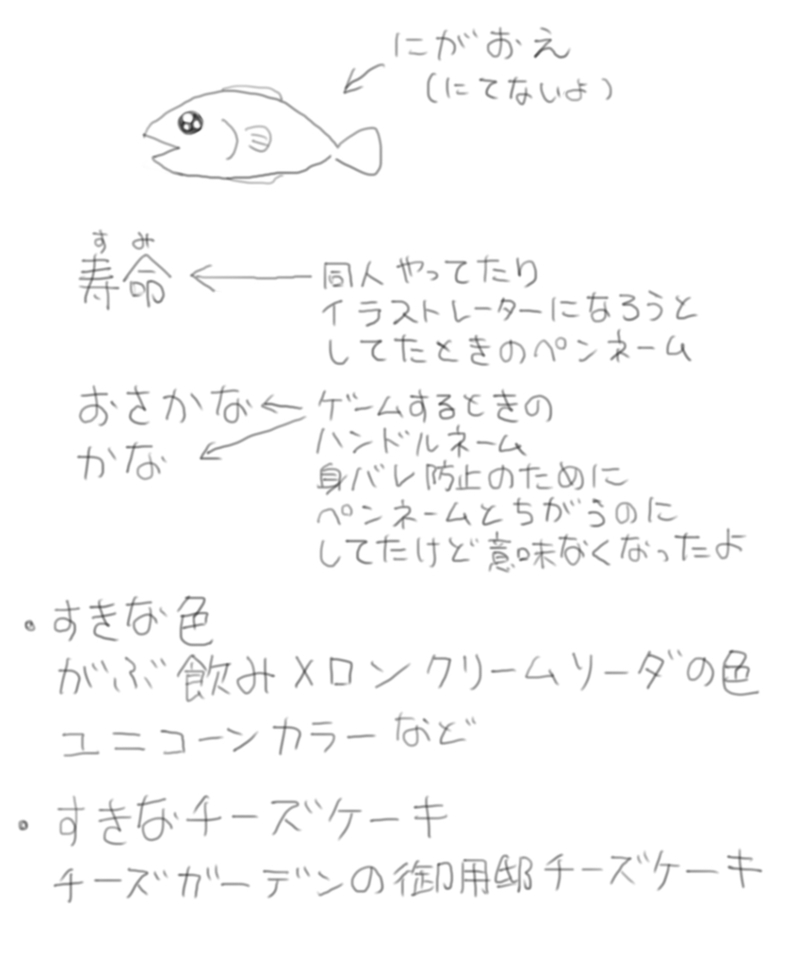 にがおえ
(にてないよ)
すみ
寿命
同人やってたり
イラストレーターになろうと
してたときのペンネーム
おさかな
かな
ゲームするときの
ハンドルネーム
身バレ防止のために
ペンネームとちがうのに
してたけど意味なくなったよ
・すきな色
がぶ飲みメロンクリームソーダの色
ユニコーンカラーなど
・すきなチーズケーキ
チーズガーデンの御用邸チーズケーキ